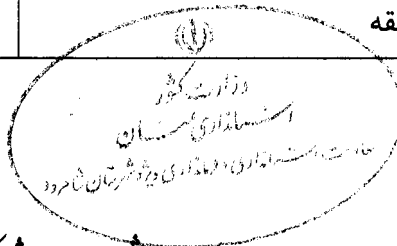 قه
وزارت کشور
استانداری سمنان
معاونت استانداری و فرمانداری ویژه شهرستان شاهرود